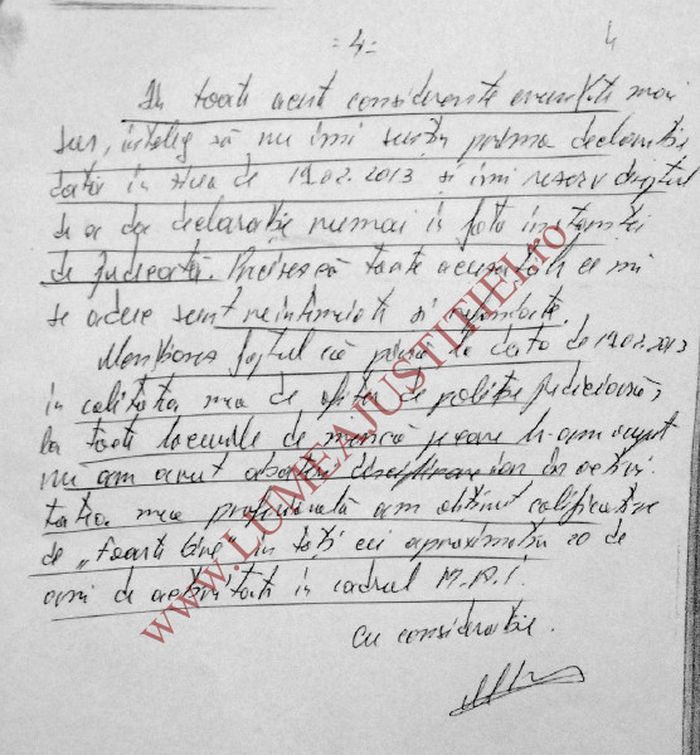 = 4 =
4
În toate acest considerente enunțate mai
sus, înțeleg să nu îmi susțin prima declarație
dată în ziua de 19.02.2013 și îmi rezerv dreptul
de a da declarație numai în fața instanței
de judecată. Precizez că toate acuzațiile ce mi
se aduc sunt neîntemeiate și
Menționez faptul că până la data de 19.02.2013
în calitatea mea de ofițer de poliție judiciară,
la toate locurile de muncă pe care le-am ocupat
nu am avut abateri disciplinare iar în activi-
tatea mea profesională am obținut calificative
de „foarte bine" în toți cei aproximativ 20 de
ani de activitate în cadrul M.A.I.
Cu considerație.
www.LUMEAJUSTITIEI.ro